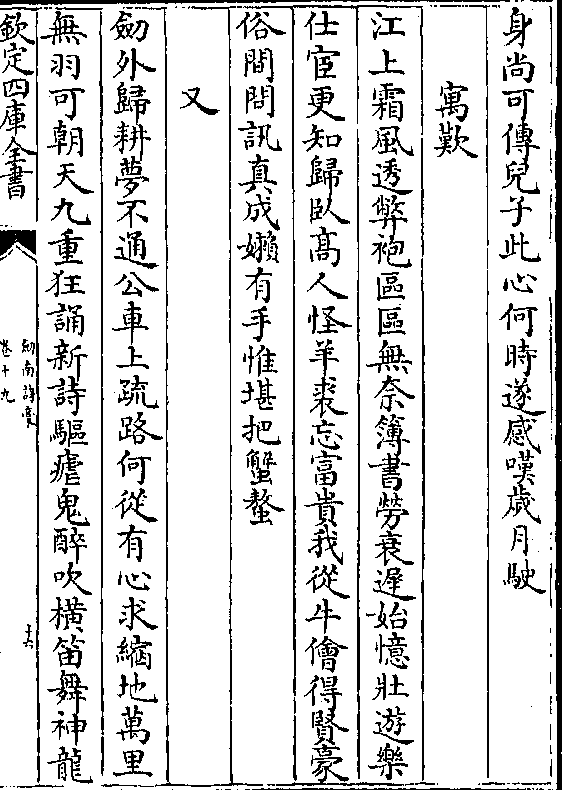 身尚可傳兒子此心何時遂感嘆歲月駛
寓歎
江上霜風透弊袍區區無奈簿書勞衰遲始憶壯遊樂
仕宦更知歸臥髙人怪羊裘忘富貴我從牛儈得賢豪
俗間問訊真成嬾有手惟堪把蟹螯
又
劒外歸耕夢不通公車上疏路何從有心求縮地萬里
無羽可朝天九重狂誦新詩驅瘧鬼醉吹橫笛舞神龍
欽定四庫全書
劒南詩藁
卷十九
十六